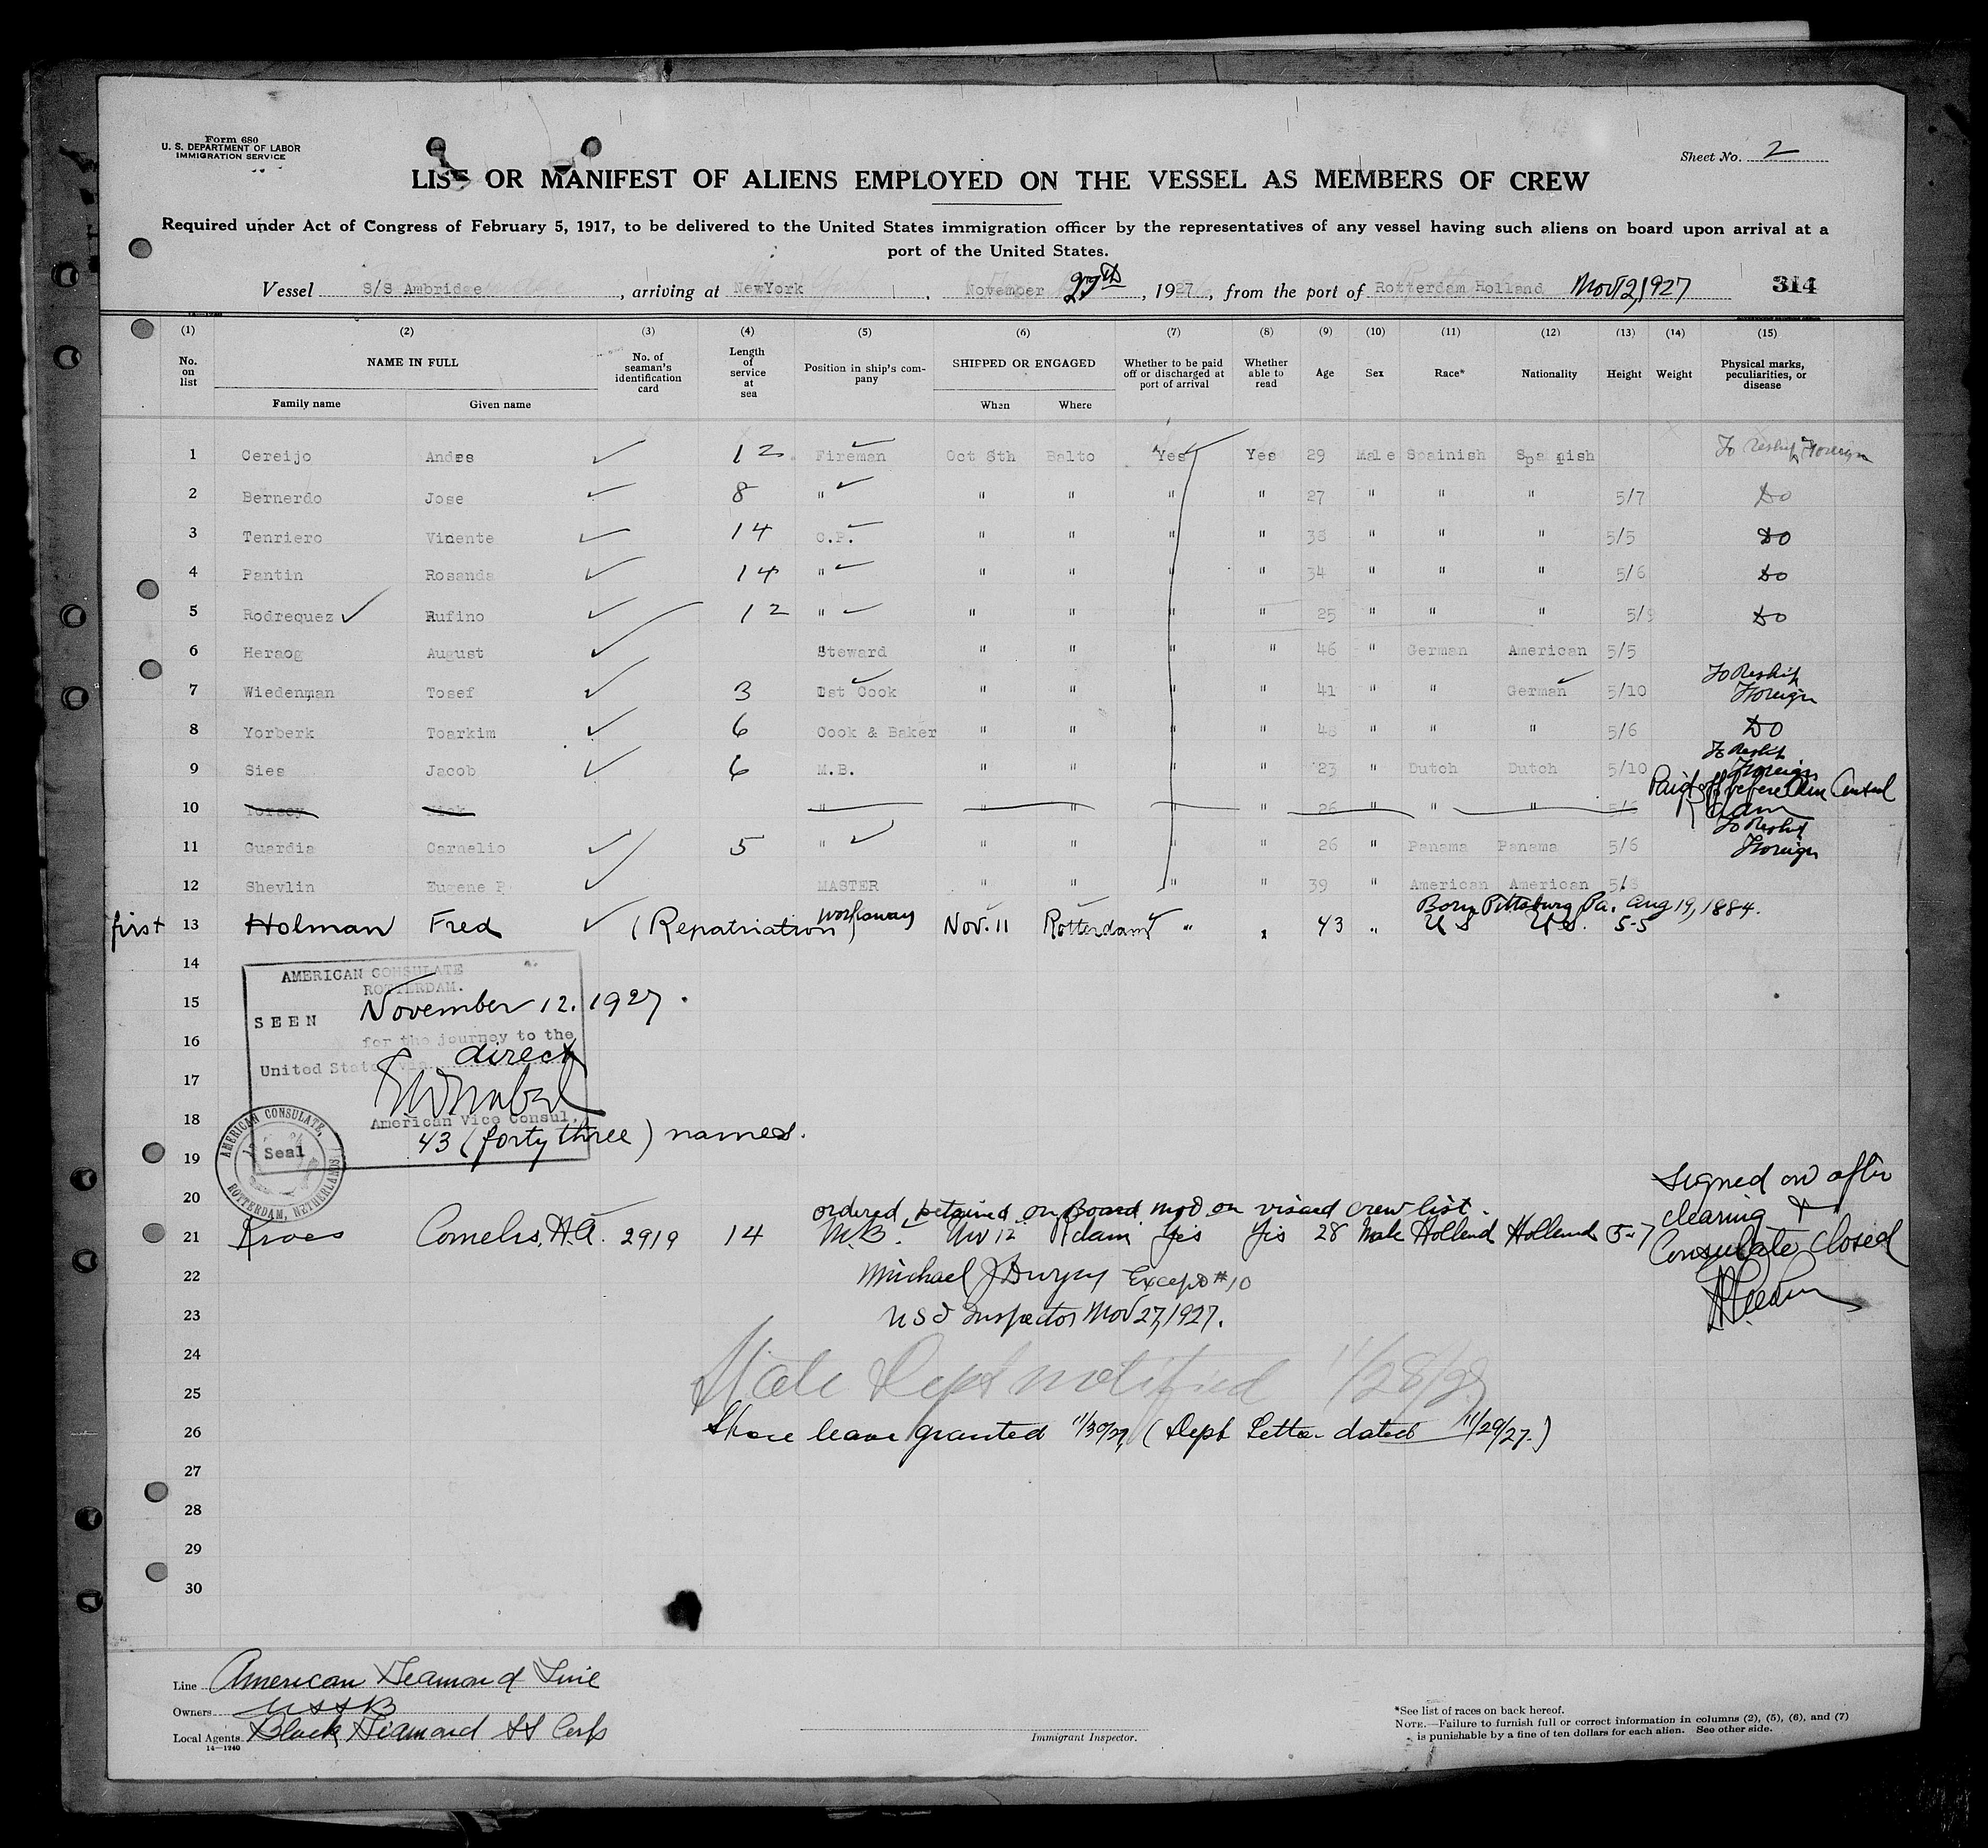 Form 680
U. S. DEPARTMENT OF LABOR
IMMIGRATION SERVICE
Sheet No. 2
LIST OR MANIFEST OF ALIENS EMPLOYED ON THE VESSEL AS MEMBERS OF CREW
Required under Act of Congress of February 5, 1917, to be delivered to the United States immigration officer by the representatives of any vessel having such aliens on board upon arrival at a
port of the United States.
Vessel S/S Ambridge, arriving at NewYork, November 27th, 1927, from the port of Rotterdam Holland Nov 12, 1927 314
(1) (2) (3) (4) (5) (6) (7) (8) (9) (10) (11) (12) (13) (14) (15)
No. on list NAME IN FULL No. of seaman's identification card Length of service at sea Position in ship's company SHIPPED OR ENGAGED Whether to be paid off or discharged at port of arrival Whether able to read Age Sex Race* Nationality Height Weight Physical marks, peculiarities, or disease
Family name Given name When Where
1 Cereijo Andes 12 Fireman Oct 8th Balto Yes Yes 29 Male Spainish Spainish To Reship Foreign
2 Bernerdo Jose 8 " " " " " 27 " " " 5/7 Do
3 Tenriero Vicente 14 O.P. " " " " 38 " " " 5/5 Do
4 Pantin Rosanda 14 " " " " " 34 " " " 5/6 Do
5 Rodrequez Rufino 12 " " " " " 25 " " " 5/9 Do
6 Heraog August Steward " " " " 46 " German American 5/5
7 Wiedenman Tosef 3 Ist Cook " " " " 41 " " German 5/10 To Reship Foreign
8 Yorberk Toarkim 6 Cook & Baker " " " " 48 " " " 5/6 Do
9 Sies Jacob 6 M.B. " " " " 23 " Dutch Dutch 5/10 To Reship Foreign
10 Nick " " " " 26 " " " Paid off before Am Consul R'dam
11 Guardia Carnelio 5 " " " " " 26 " Panama Panama 5/6 To Reship Foreign
12 Shevlin Eugene P MASTER " " " " 39 " American American
Born Pittsburg Pa. Aug 19, 1884.
first 13 Holman Fred (Repatriation) workaway Nov. 11 Rotterdam " " 43 " U S U S. 5-5
14
AMERICAN CONSULATE
ROTTERDAM.
15
SEEN November 12. 1927.
16
for the journey to the
United States via direct
17
18
American Vice Consul.
43 (forty three) names.
AMERICAN CONSULATE, ROTTERDAM, NETHERLANDS
Seal
19
20
ordered detained on Board not on visaed crew list.
21 Kroes Cornelis, H.A. 2919 14 M.B. Nov 12 R'dam Yes Yes 28 Male Holland Holland 5-7
signed on after
clearing &
Consulate closed
22 Michael J Dwyer Except #10
23 U S I Inspector Nov 27, 1927.
24
State Dept notified 11/28/27
25
26 Shore leave granted 11/30/27, (Dept Letter dated 11/29/27.)
27
28
29
30
Line American Diamond Line
Owners U S S B
Local Agents Black Diamond SS Corp
14—1240
Immigrant Inspector.
*See list of races on back hereof.
NOTE.—Failure to furnish full or correct information in columns (2), (5), (6), and (7)
is punishable by a fine of ten dollars for each alien. See other side.